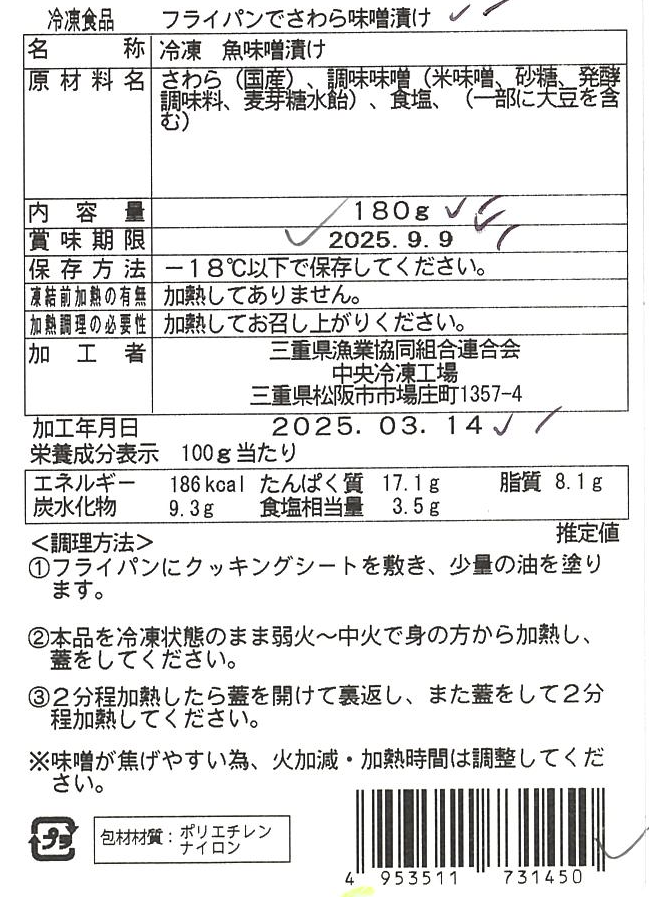 冷凍食品 フライパンでさわら味噌漬け
名称 冷凍 魚味噌漬け
原材料名 さわら（国産）、調味味噌（米味噌、砂糖、発酵
調味料、麦芽糖水飴）、食塩、（一部に大豆を含
む）
内容量 180g
賞味期限 2025.9.9
保存方法 －18℃以下で保存してください。
凍結前加熱の有無 加熱してありません。
加熱調理の必要性 加熱してお召し上がりください。
加工者 三重県漁業協同組合連合会
中央冷凍工場
三重県松阪市市場庄町1357-4
加工年月日 2025. 03. 14
栄養成分表示 100g当たり
エネルギー 186kcal たんぱく質 17.1g 脂質 8.1g
炭水化物 9.3g 食塩相当量 3.5g
推定値
＜調理方法＞
①フライパンにクッキングシートを敷き、少量の油を塗り
ます。
②本品を冷凍状態のまま弱火～中火で身の方から加熱し、
蓋をしてください。
③２分程加熱したら蓋を開けて裏返し、また蓋をして２分
程加熱してください。
※味噌が焦げやすい為、火加減・加熱時間は調整してくだ
さい。
プラ
包材材質：ポリエチレン
ナイロン
4 953511 731450